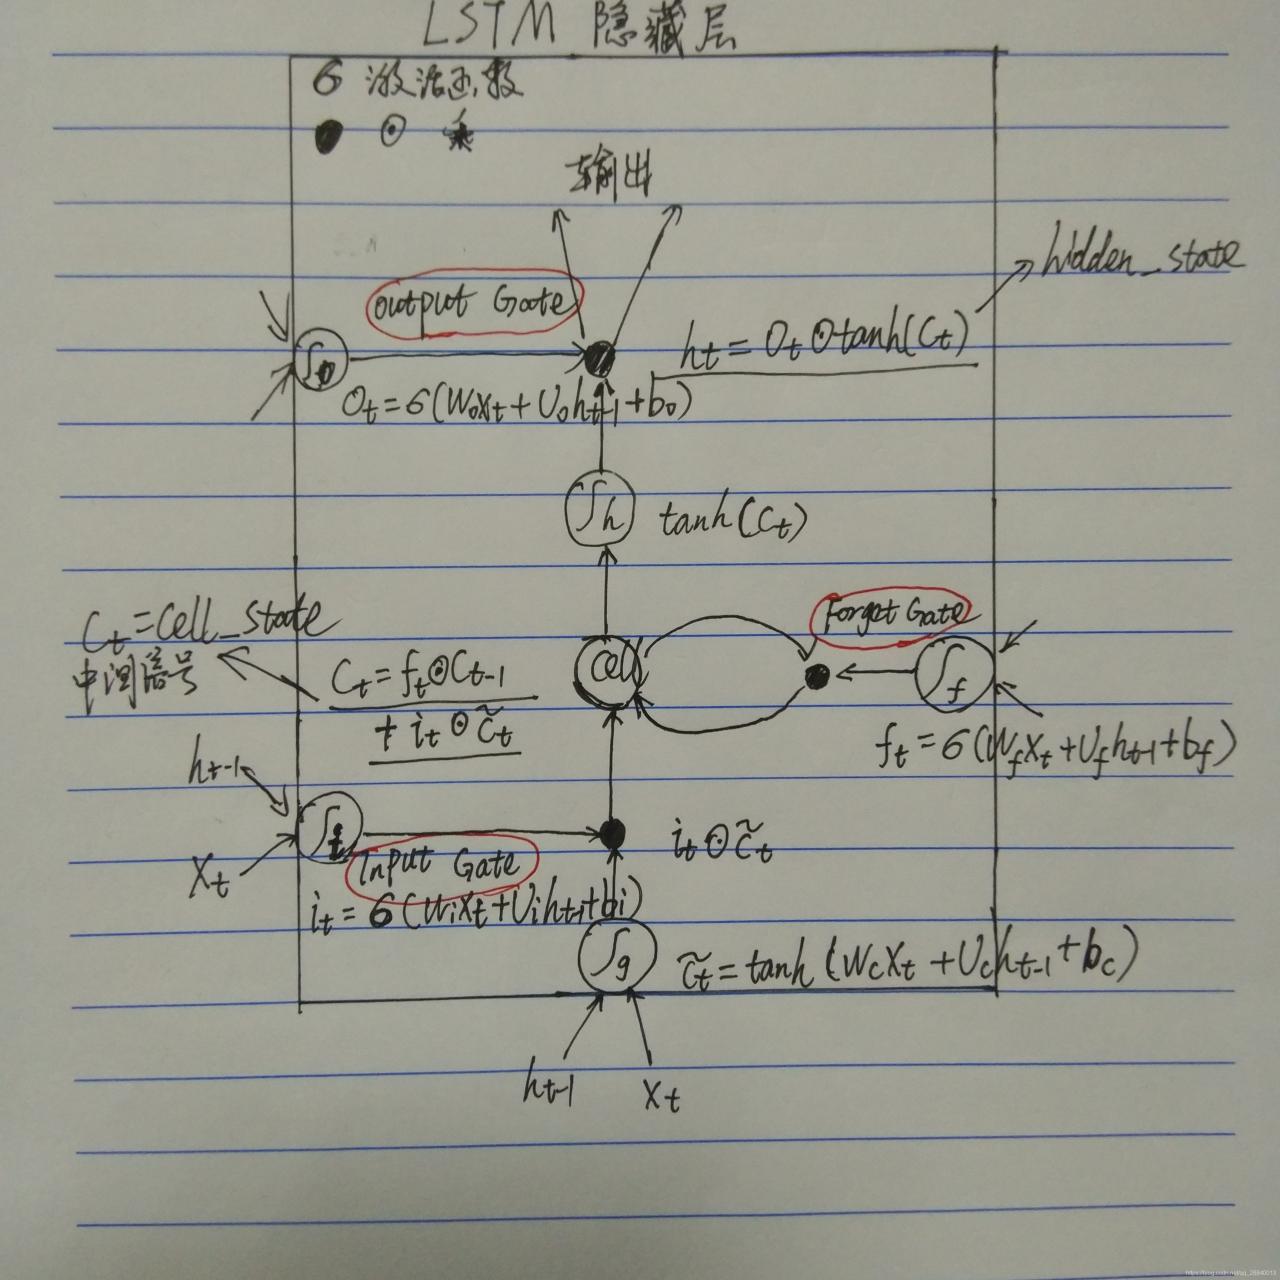 LSTM 隐藏层
6 激活函数
● ⊙ *
输出
hidden_state
Output Gate
ht = Ot⊙tanh(Ct)
Ot = 6(WoXt + Uoht-1 + bo)
∫h tanh(Ct)
Forget Gate
Ct = Cell_state
中间信号
Cell
∫f
Ct = ft⊙Ct-1
+ it⊙c̃t
ft = 6(WfXt + Ufht-1 + bf)
ht-1
∫i
it⊙c̃t
Xt
Input Gate
it = 6(WiXt + Uiht-1 + bi)
∫g
c̃t = tanh(WcXt + Ucht-1 + bc)
ht-1
Xt